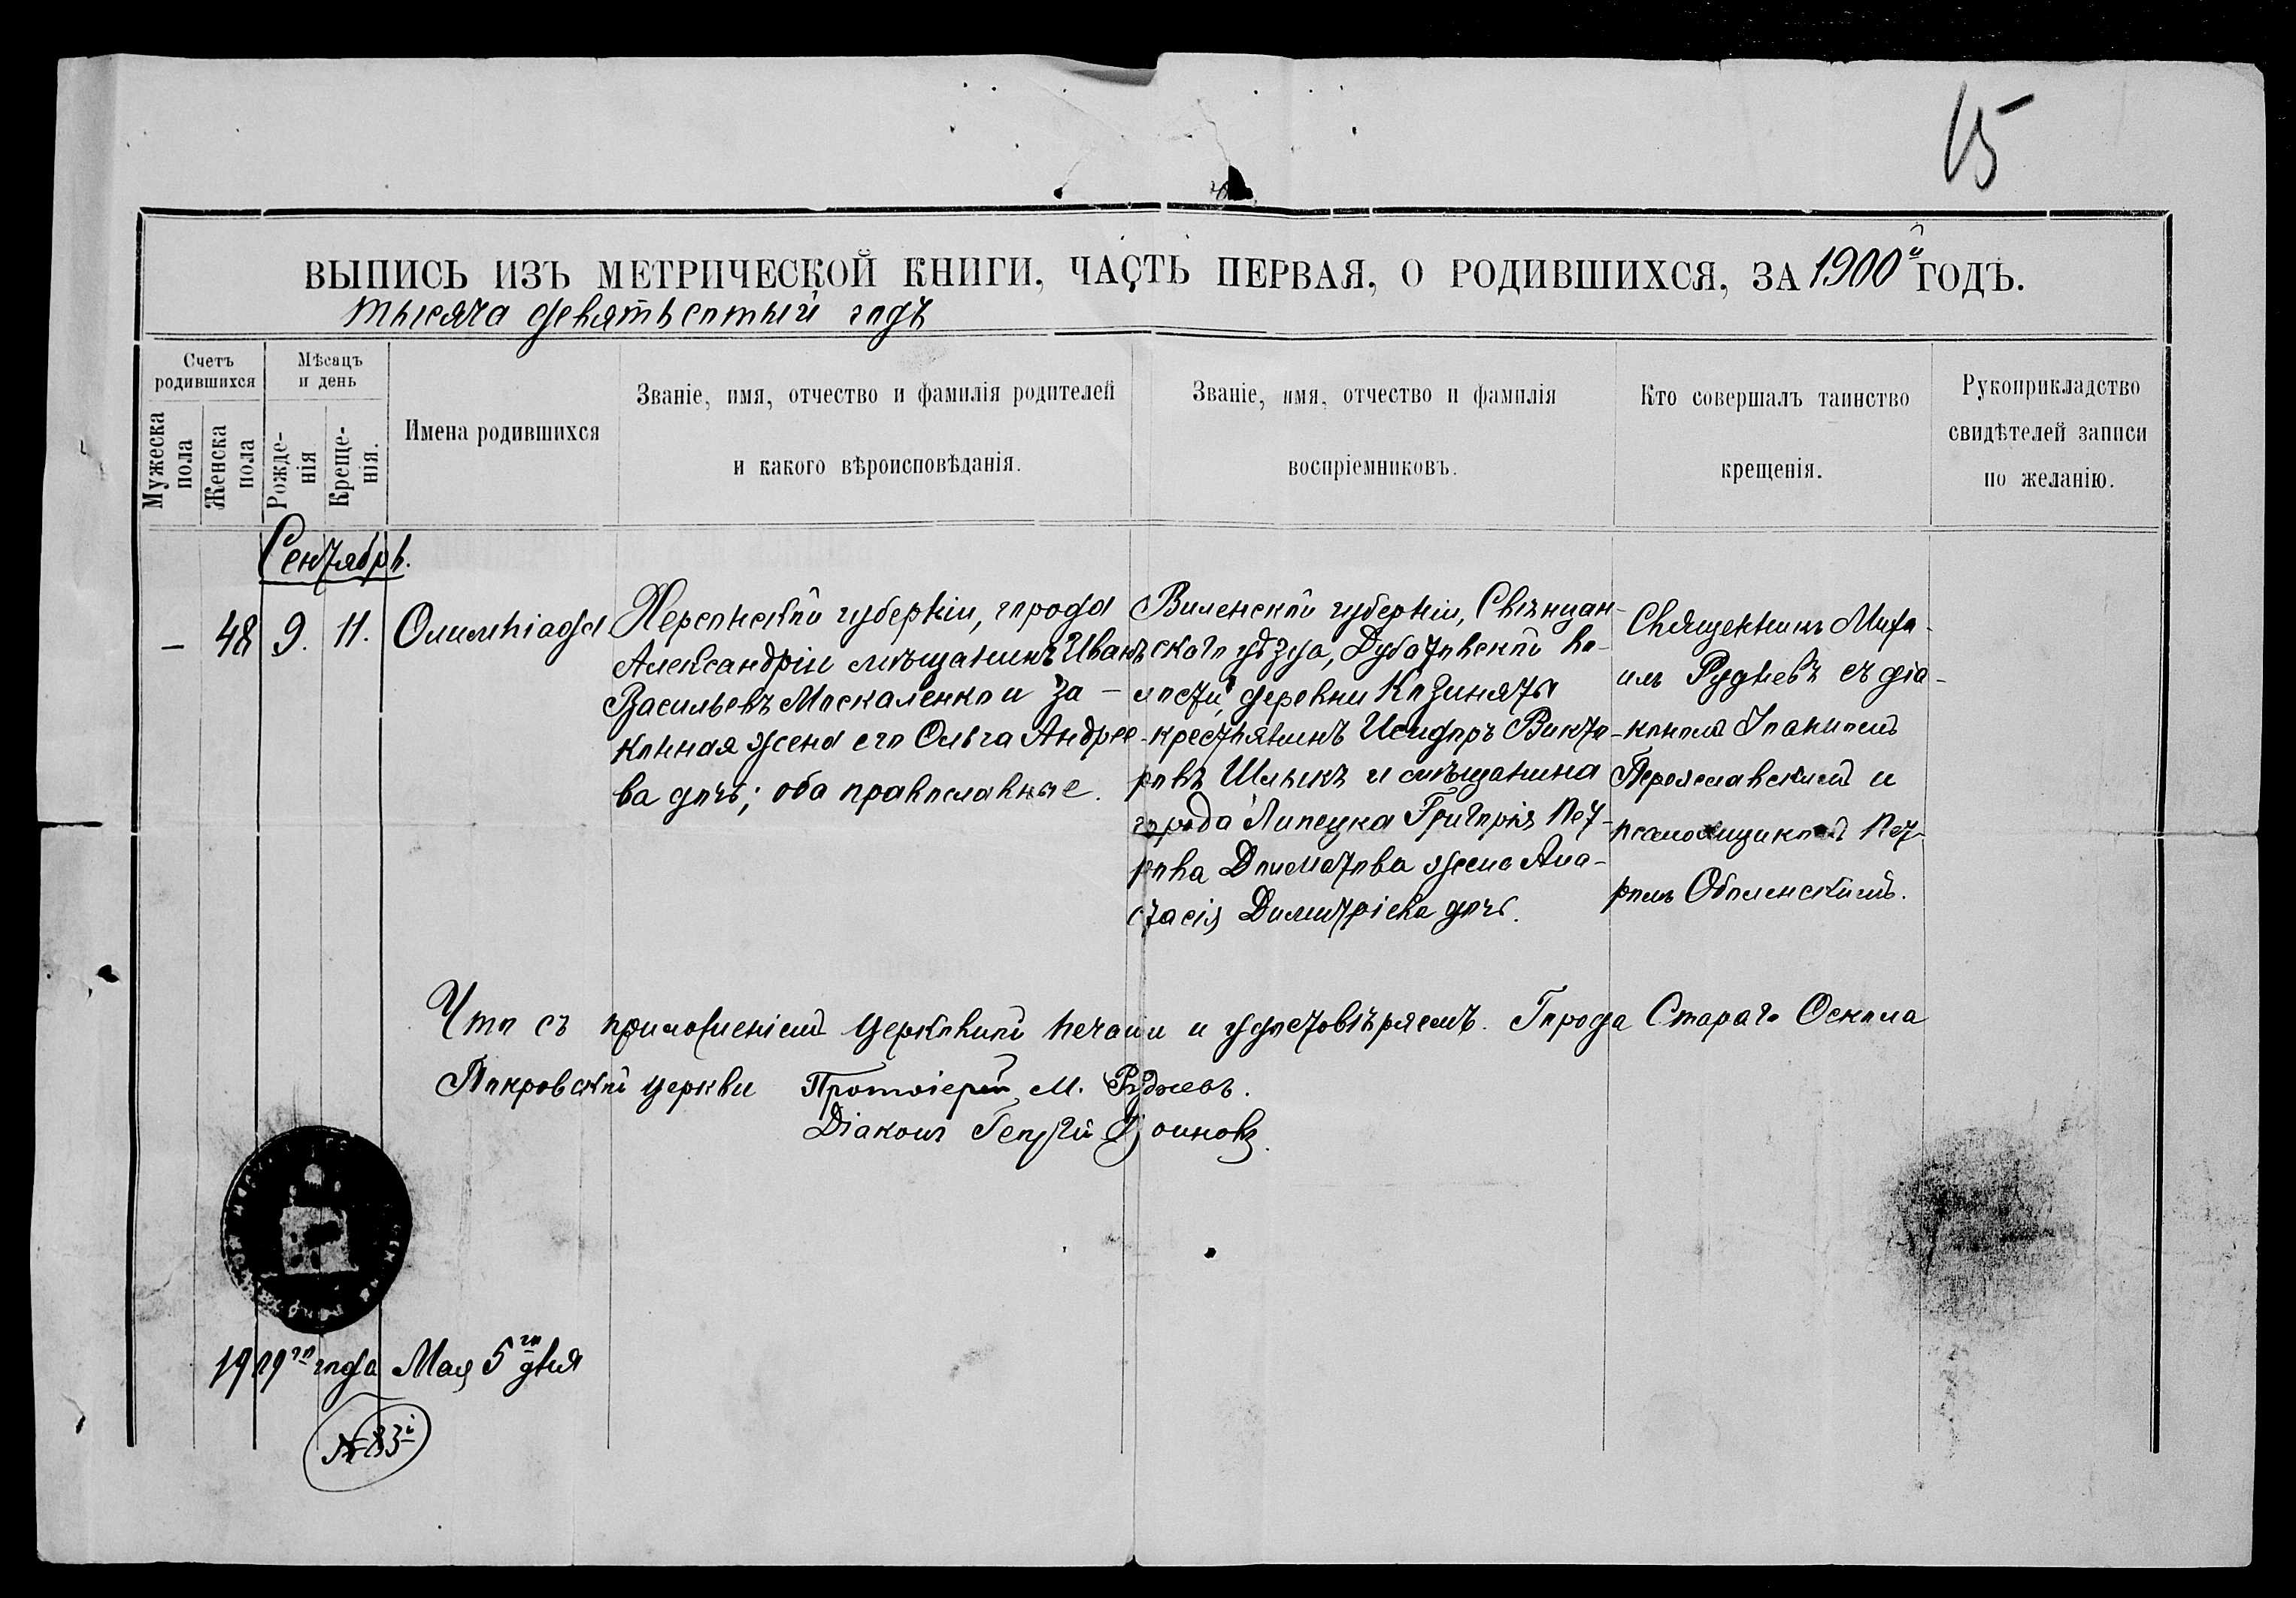 15
ВЫПИСЬ ИЗЪ МЕТРИЧЕСКОЙ КНИГИ, ЧАСТЬ ПЕРВАЯ, О РОДИВШИХСЯ, ЗА 1900й ГОДЪ.
тысяча девятьсотый годъ
Счетъ родившихся
Мужеска пола
Женска пола
Мѣсяцъ и день
Рожде-
нія
Креще-
нія.
Имена родившихся
Званіе, имя, отчество и фамилія родителей
и какого вѣроисповѣданія.
Званіе, имя, отчество и фамилія
воспріемниковъ.
Кто совершалъ таинство
крещенія.
Рукоприкладство
свидѣтелей записи
по желанію.
Сентябрь.
– 48 9. 11. Олимпіада
Херсонской губерніи, города
Александріи мѣщанинъ Иванъ
Васильевъ Москаленко и за-
конная жена его Ольга Андрее-
ва дочь; оба православные.
Виленской губерніи, Свѣнцян-
скаго уѣзда, Дубатовской во-
лости, деревни Козиняты
крестьянинъ Исидоръ Викто-
ровъ Шлыкъ и мѣщанина
города Липецка Григорія Пет-
рова Долматова жена Ана-
стасія Димитріева дочь.
Священникъ Миха-
илъ Рудневъ съ діа-
кономъ Іоанномъ
Переяславскимъ и
псаломщикомъ Пет-
ромъ Оболенскимъ.
Что съ приложеніемъ церковной печати и удостовѣряемъ. Города Стараго Оскола
Покровской церкви Протоіерей М. Рудневъ.
Діаконъ Георгій
1909го года Мая 5го дня
№ 83й